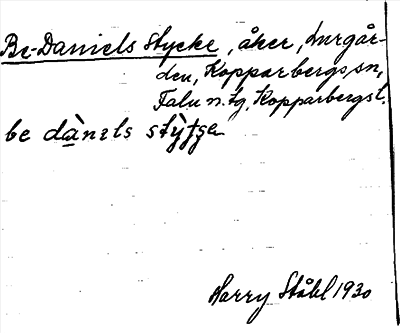 Be-Daniels Stycke, åker, Lurgår-
den, Kopparbergs sn,
Falu n. tg, Kopparbergs l.
be dànəls stỳtʃɛ
Harry Ståhl 1930